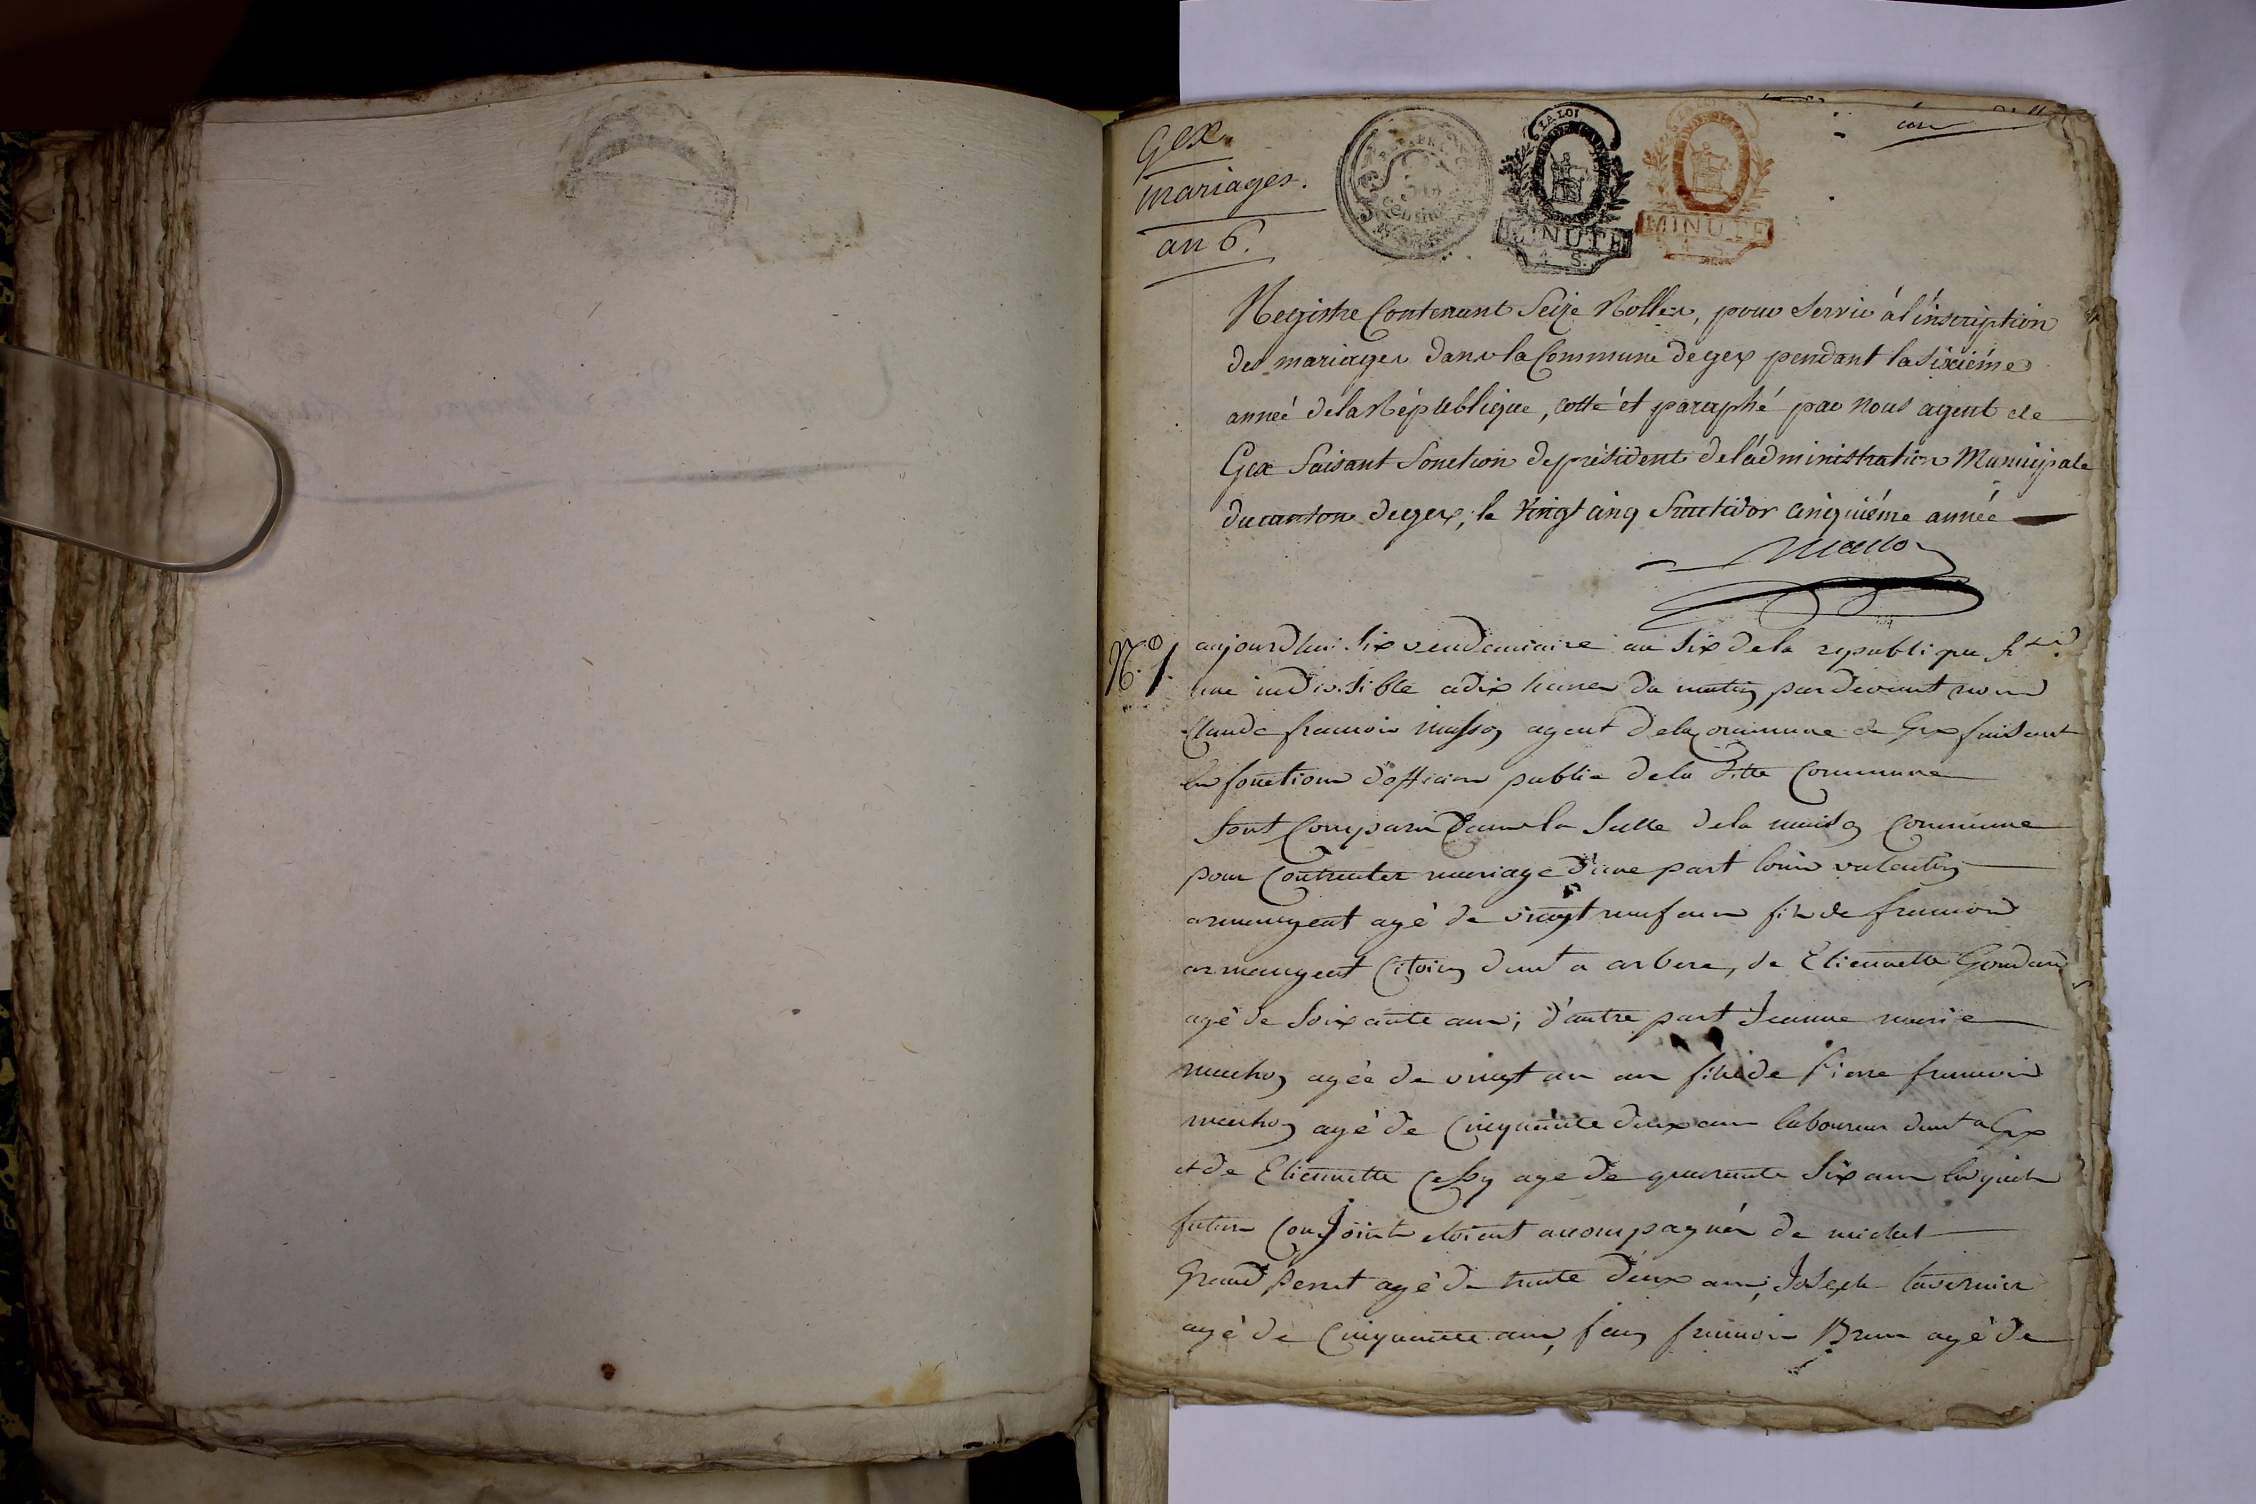 Gex.
mariages.
an 6.
LA LOI
MINUTE
4. S.
MINUTE
4. S.
Registre Contenant Seize Rolles, pour servir à l'inscription
des mariages dans la Commune de gex pendant la sixième
année de la République, cotté et paraphé par Nous agent de
Gex faisant fonction de président de l'administration Municipale
du canton de gex, le vingt cinq fructidor cinquième année
N.º 1.
aujourdhui six vendemiaire an six de la republique
une indivisible a dix heures du matin pardevant nous
Claude francois masson agent de la commune de Gex faisant
les fonctions d'officier public de la ditte Commune
sont Comparu dans la salle de la maison Commune
pour Contracter mariage d'une part louis valentin
armangeat agé de vingt neuf ans fils de francois
armangeat Citoien demt a arbere, de Etiennette
agé de soixante ans; d'autre part Jeanne marie
agée de vingt un an fille de Pierre francois
agé de Cinquante deux ans laboureur demt a Gex
et de Etiennette age de quarante six ans lesquels
futurs Conjoints etoient acompagnés de michel
Grand Perret agé de trente deux ans, Joseph tavernier
agé de Cinquante ans, jean francois Brun agé de